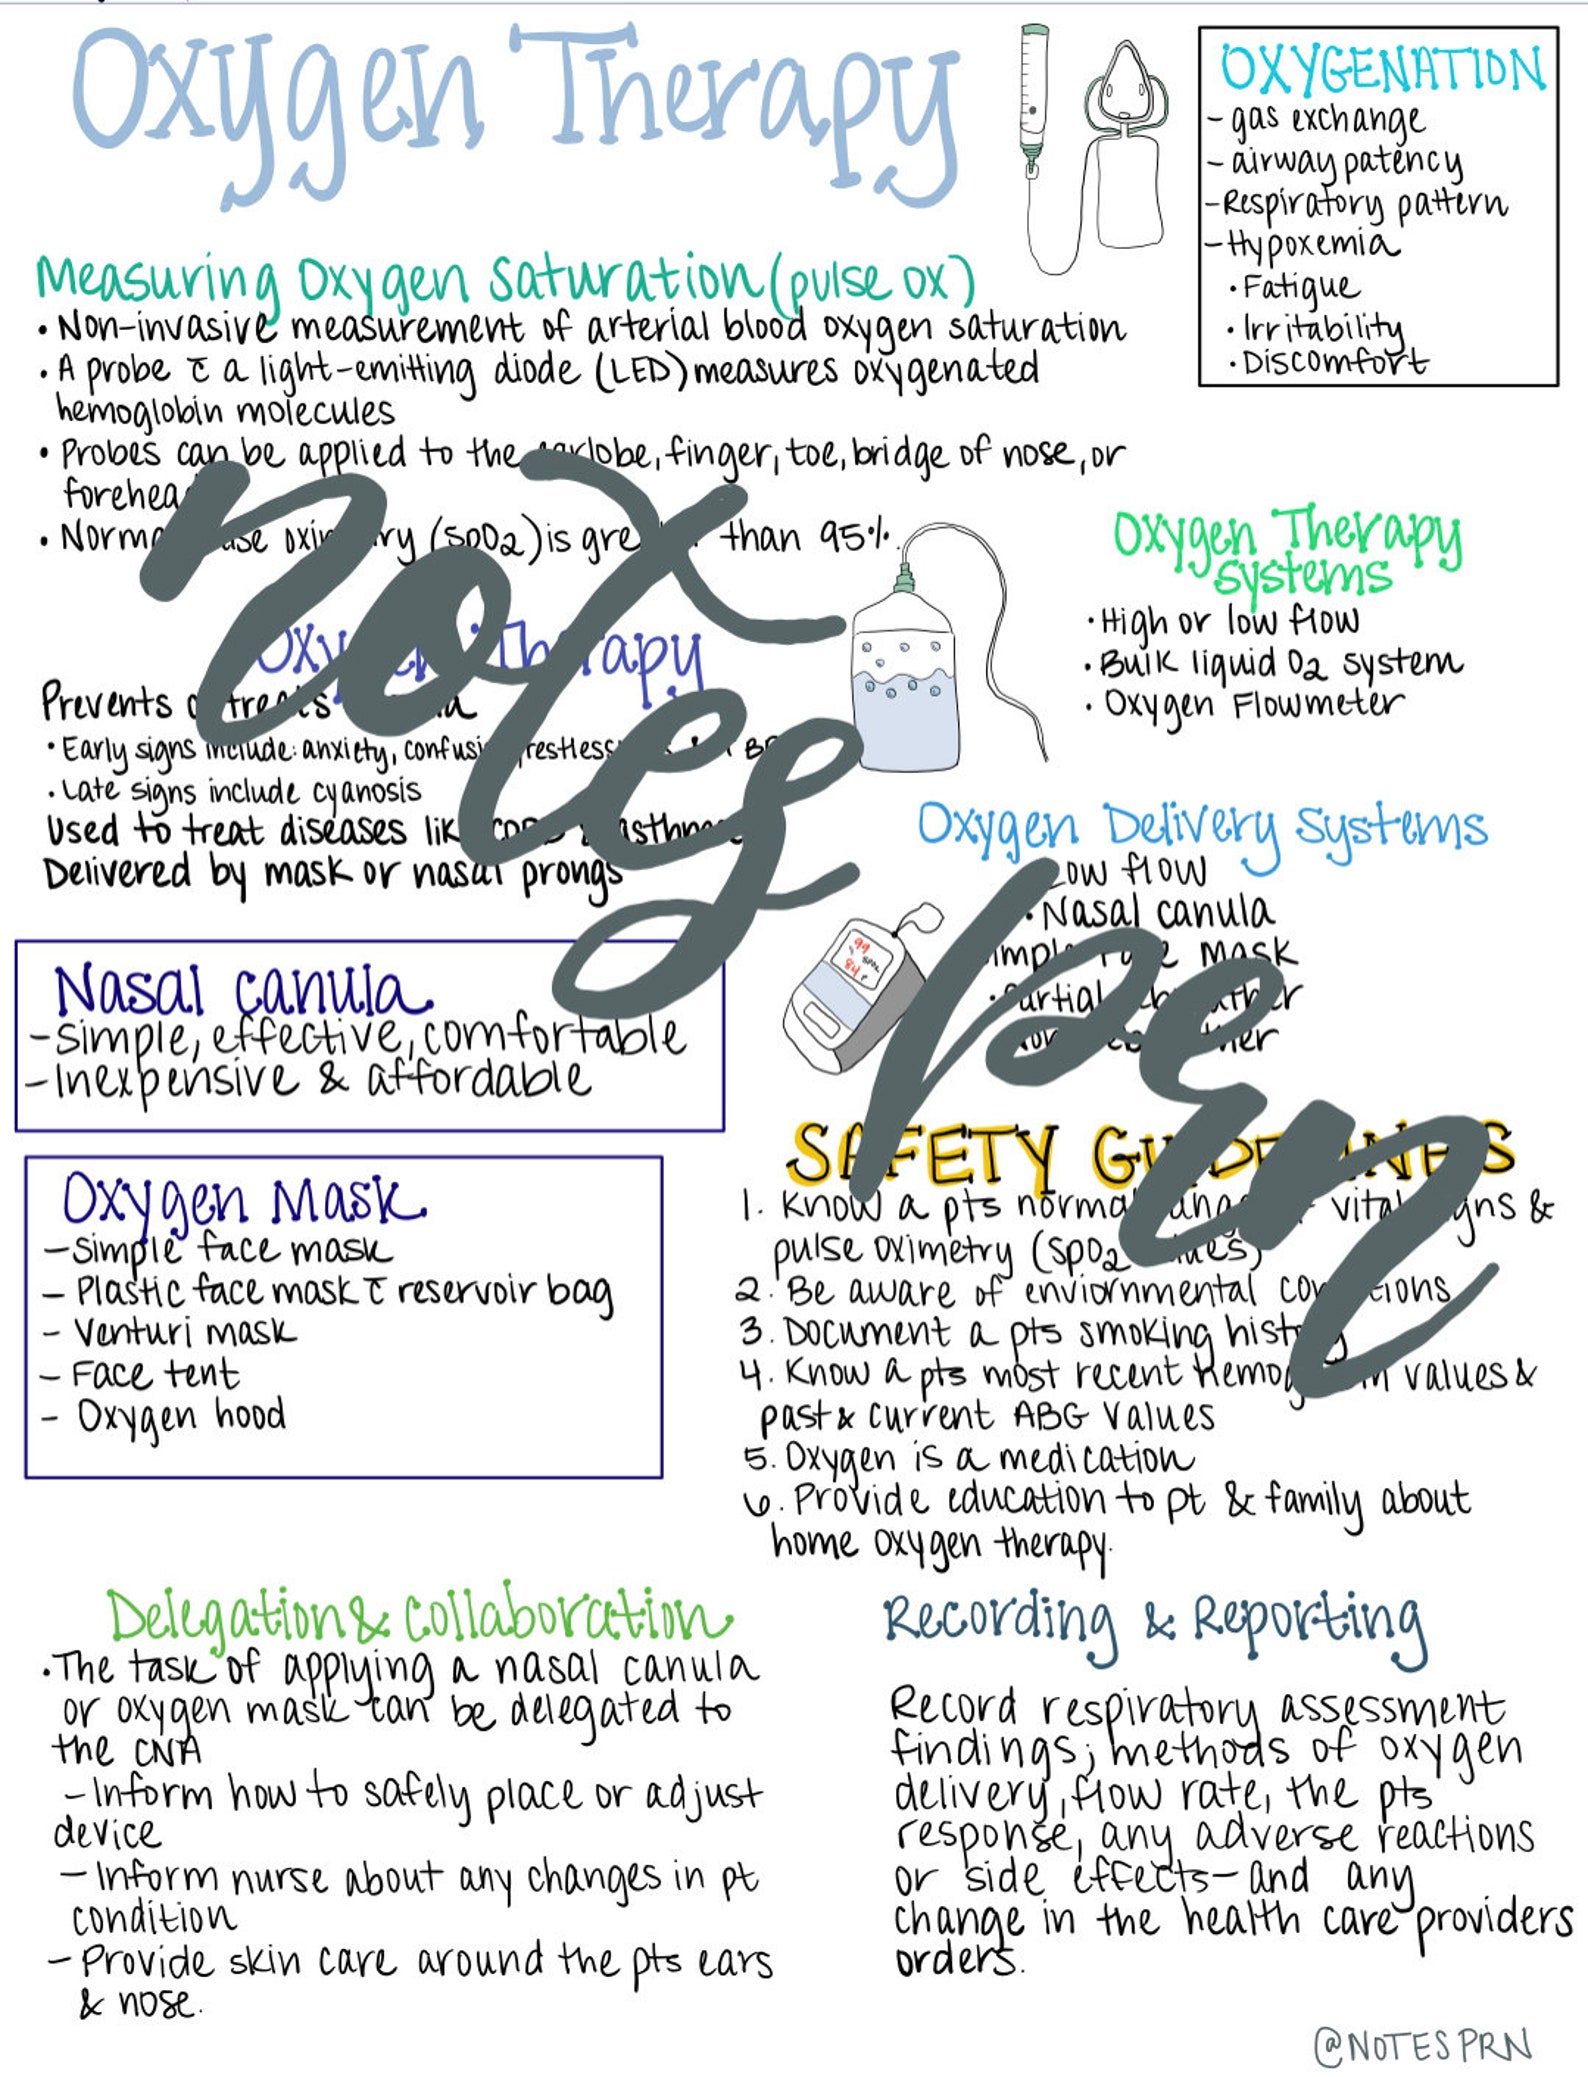 Oxygen Therapy
OXYGENATION
- gas exchange
- airway patency
- Respiratory pattern
- Hypoxemia
• Fatigue
• Irritability
• Discomfort
Measuring Oxygen Saturation (pulse ox)
• Non-invasive measurement of arterial blood oxygen saturation
• A probe c̄ a light-emitting diode (LED) measures oxygenated
hemoglobin molecules
• Probes can be applied to the earlobe, finger, toe, bridge of nose, or
forehead
• Normal pulse oximetry (SpO2) is greater than 95%.
Oxygen Therapy
systems
• High or low flow
• Bulk liquid O2 system
• Oxygen Flowmeter
Oxygen Therapy
Prevents or treats
• Early signs include: anxiety, confusion, restlessness
• Late signs include cyanosis
Used to treat diseases like COPD & asthma
Delivered by mask or nasal prongs
Oxygen Delivery Systems
Low flow
• Nasal canula
Simple Face Mask
• Partial rebreather
Nonrebreather
99
SpO2
84
Nasal canula
- simple, effective, comfortable
- Inexpensive & affordable
Oxygen Mask
- Simple face mask
- Plastic face mask c̄ reservoir bag
- Venturi mask
- Face tent
- Oxygen hood
SAFETY GUIDELINES
1. Know a pts normal range of vital signs &
pulse oximetry (SpO2 values)
2. Be aware of enviornmental conditions
3. Document a pts smoking history
4. Know a pts most recent hemoglobin values &
past & current ABG values
5. Oxygen is a medication
6. Provide education to pt & family about
home oxygen therapy.
Delegation & Collaboration
• The task of applying a nasal canula
or oxygen mask can be delegated to
the CNA
- Inform how to safely place or adjust
device
- Inform nurse about any changes in pt
condition
- Provide skin care around the pts ears
& nose.
Recording & Reporting
Record respiratory assessment
findings; methods of oxygen
delivery, flow rate, the pts
response, any adverse reactions
or side effects - and any
change in the health care providers
orders.
notes
prn
@NOTESPRN